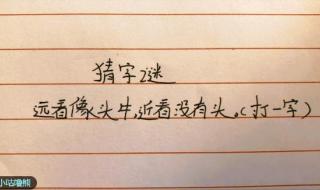 猜字谜
远看像头牛,近看没有头。(打一字)
小咕噜熊